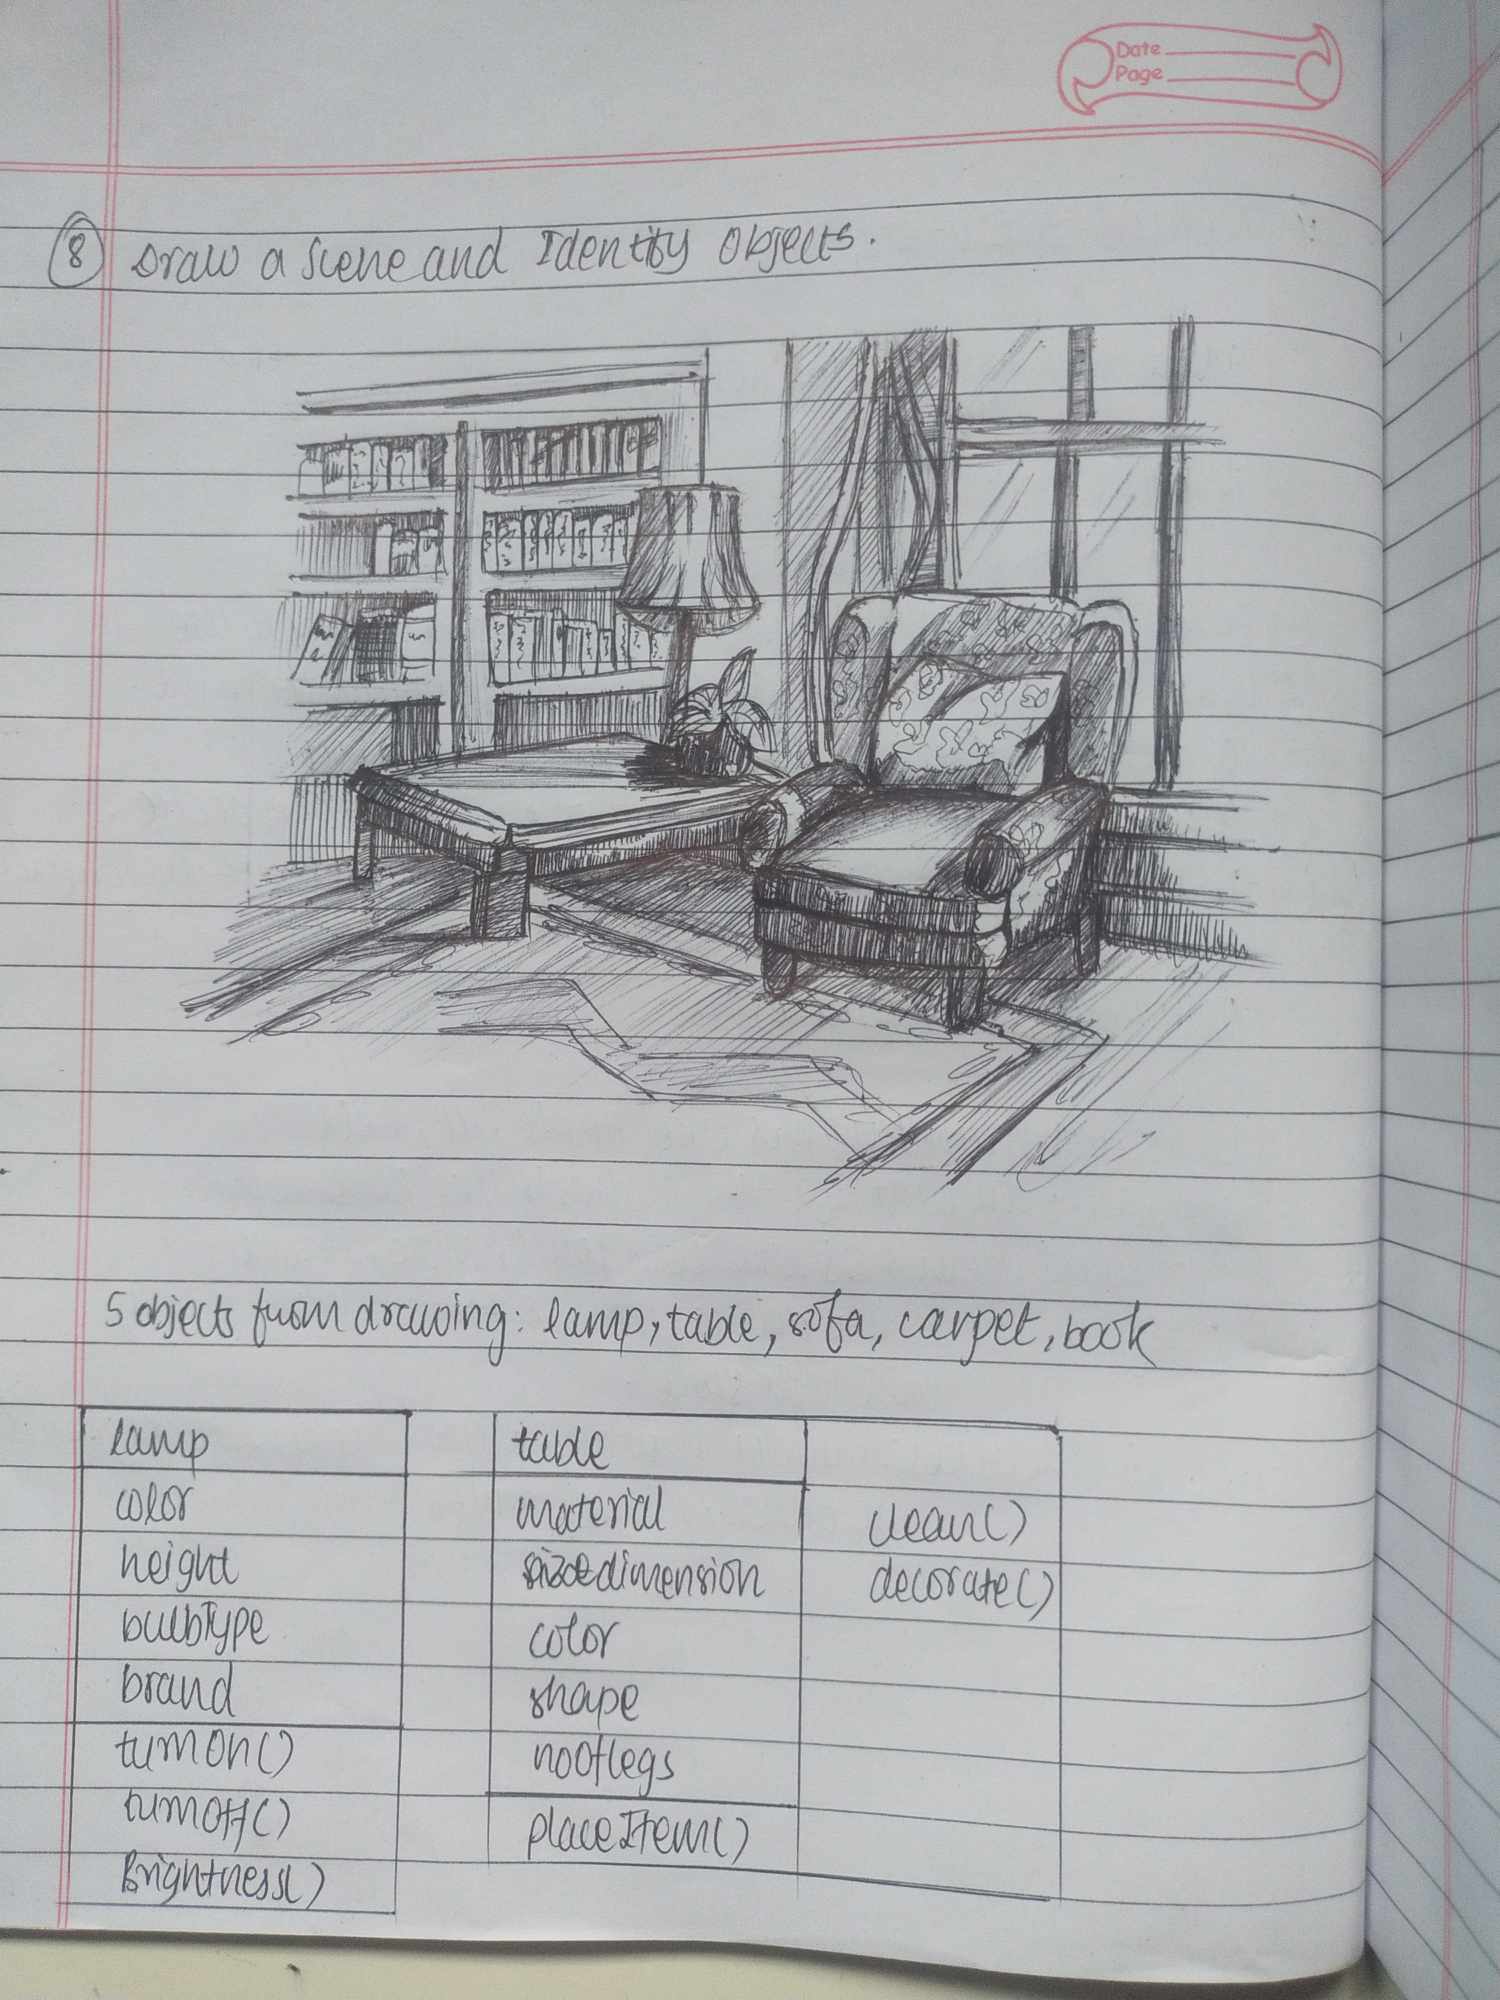 Date
Page
8 Draw a scene and Identify Objects.
5 objects from drawing: lamp, table, sofa, carpet, book
lamp
color
height
bulbType
brand
turnOn()
turnOff()
Brightness()
table
material
dimension
color
shape
noOflegs
placeItem()
clean()
decorate()